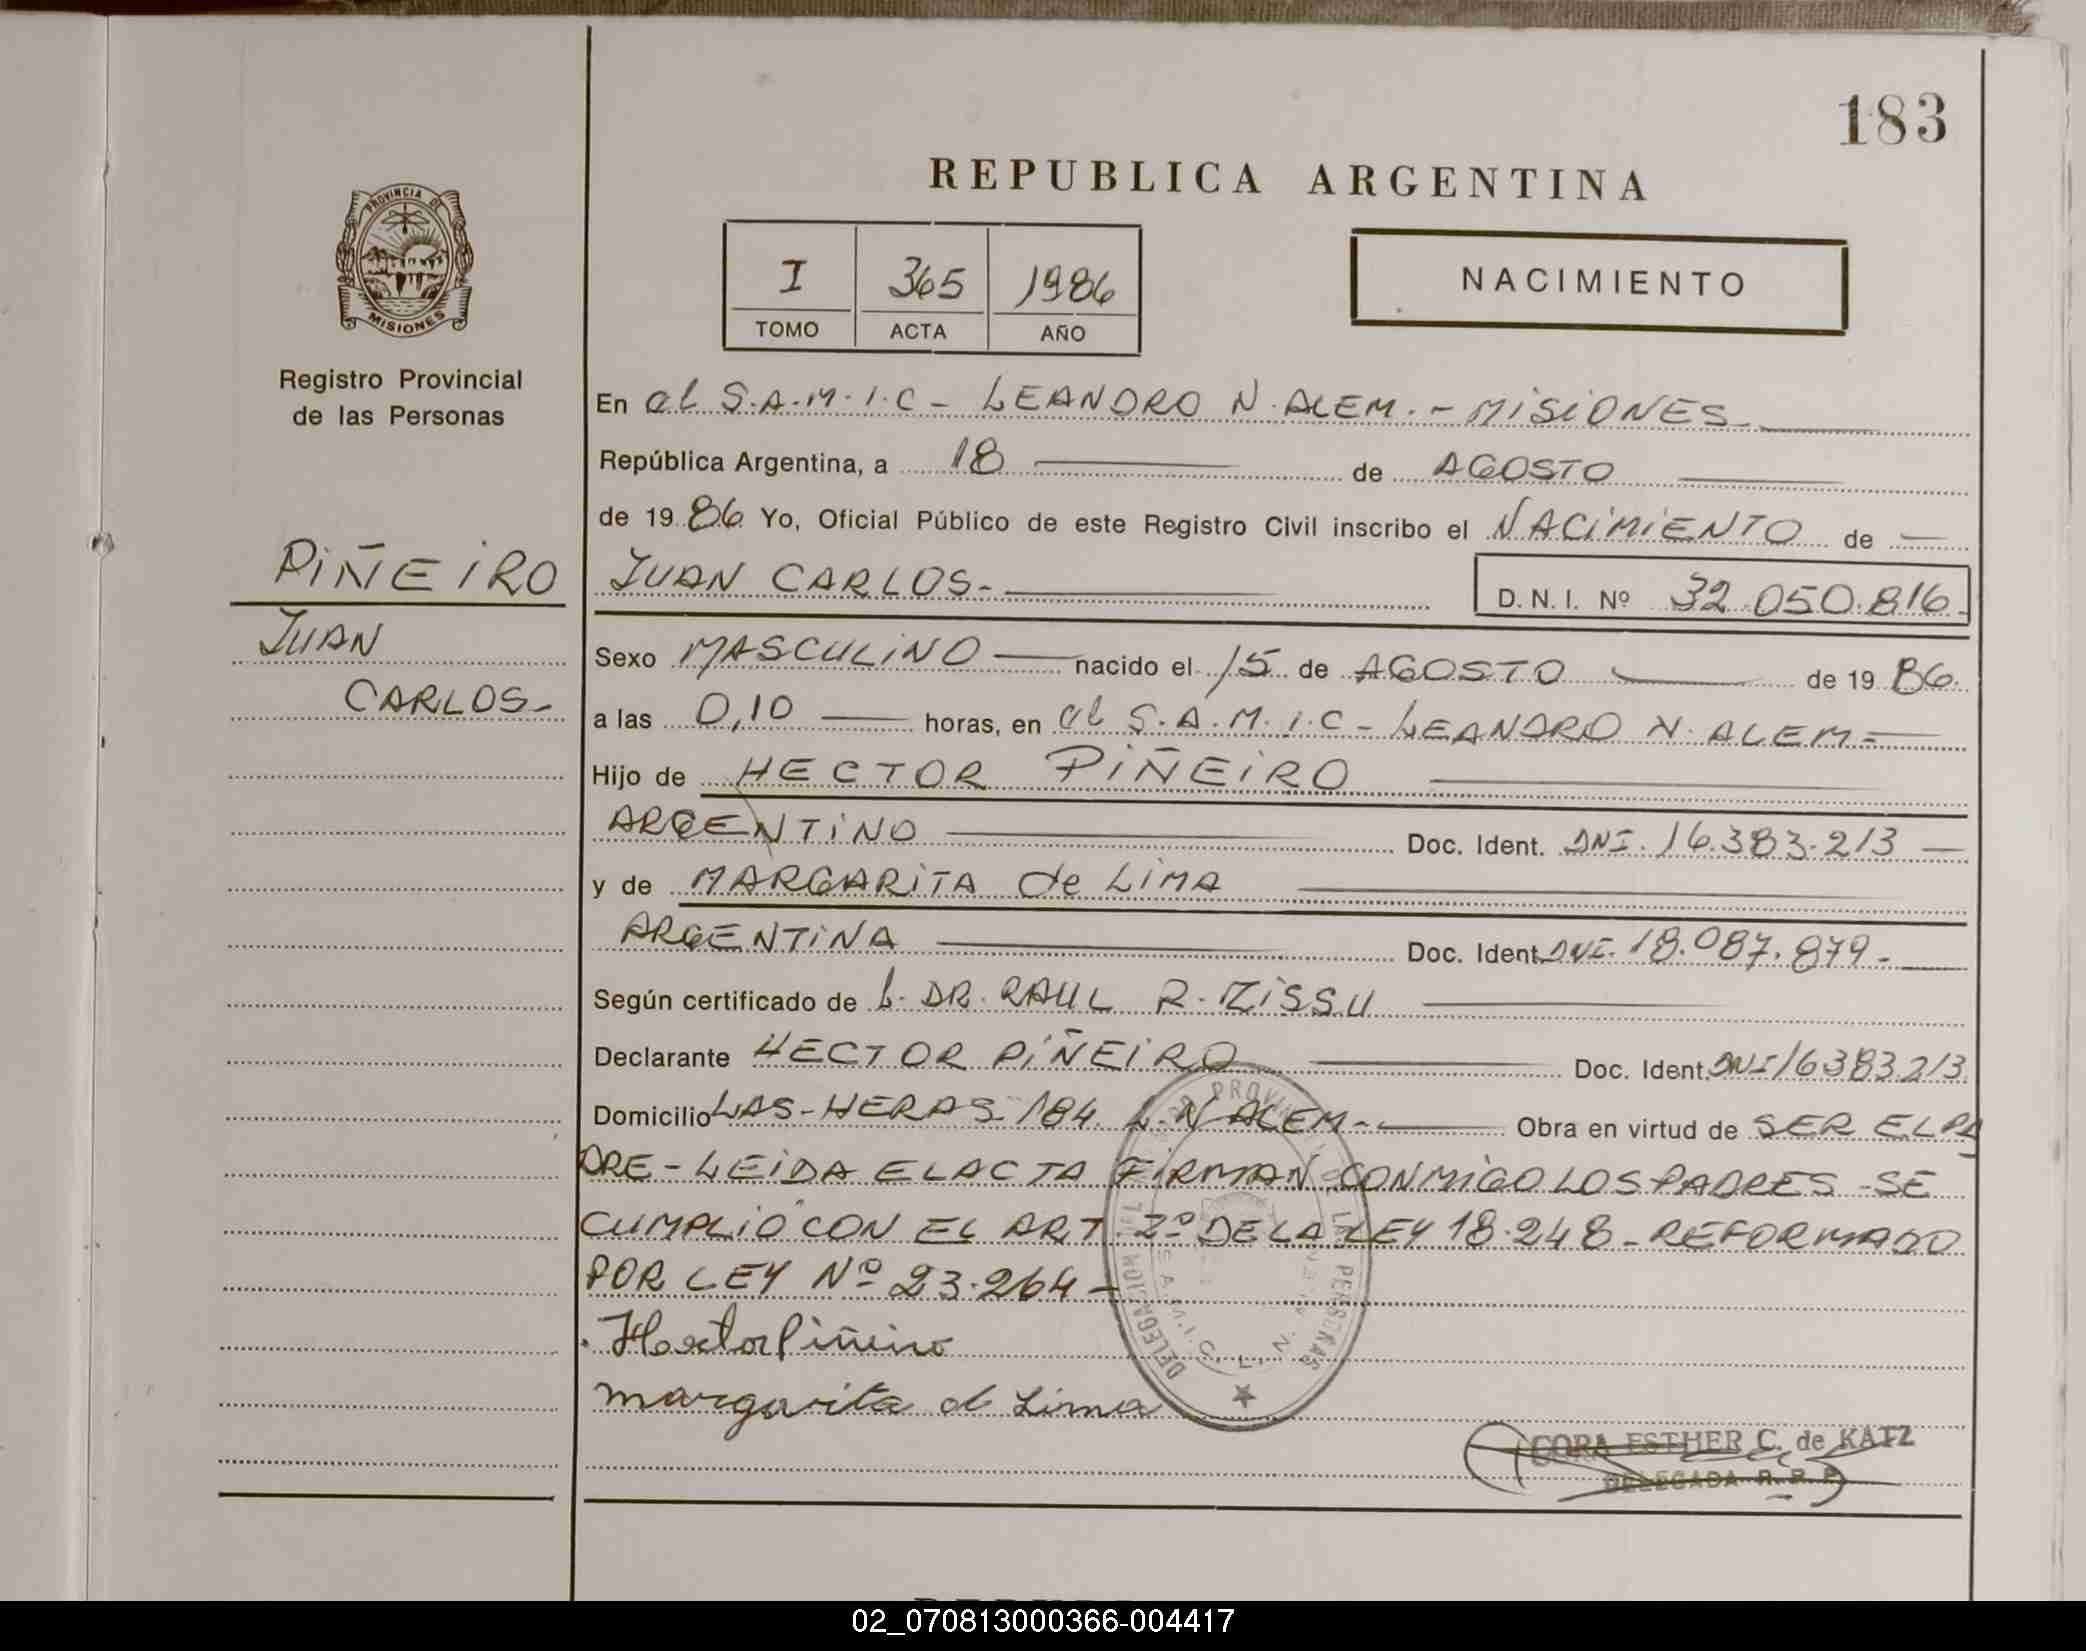 183
REPUBLICA ARGENTINA
PROVINCIA DE
MISIONES
I 365 1986
TOMO ACTA AÑO
NACIMIENTO
Registro Provincial
de las Personas
PIÑEIRO
JUAN
CARLOS-
En el S.A.M.I.C - LEANDRO N. ALEM. - MISIONES
República Argentina, a 18 de AGOSTO
de 1986 Yo, Oficial Público de este Registro Civil inscribo el NACIMIENTO de
JUAN CARLOS- D.N.I. Nº 32.050.816.
Sexo MASCULINO nacido el 15 de AGOSTO de 1986.
a las 0,10 horas, en el S.A.M.I.C - LEANDRO N. ALEM-
Hijo de HECTOR PIÑEIRO
ARGENTINO Doc. Ident. DNI. 16.383.213
y de MARGARITA de LIMA
ARGENTINA Doc. Ident. DNI. 18.087.879-
Según certificado de L. DR. RAUL R. ZISSU
Declarante HECTOR PIÑEIRO Doc. Ident. DNI 16383213
Domicilio LAS-HERAS 184. L.N ALEM- Obra en virtud de SER EL PA
DRE - LEIDA EL ACTA FIRMAN CONMIGO LOS PADRES - SE
CUMPLIO CON EL ART. 2º DE LA LEY 18.248 - REFORMADO
POR LEY Nº 23.264 -
Hector Piñeiro
margarita de Lima
CORA ESTHER C. de KATZ
DELEGADA R.P.P.
02_070813000366-004417